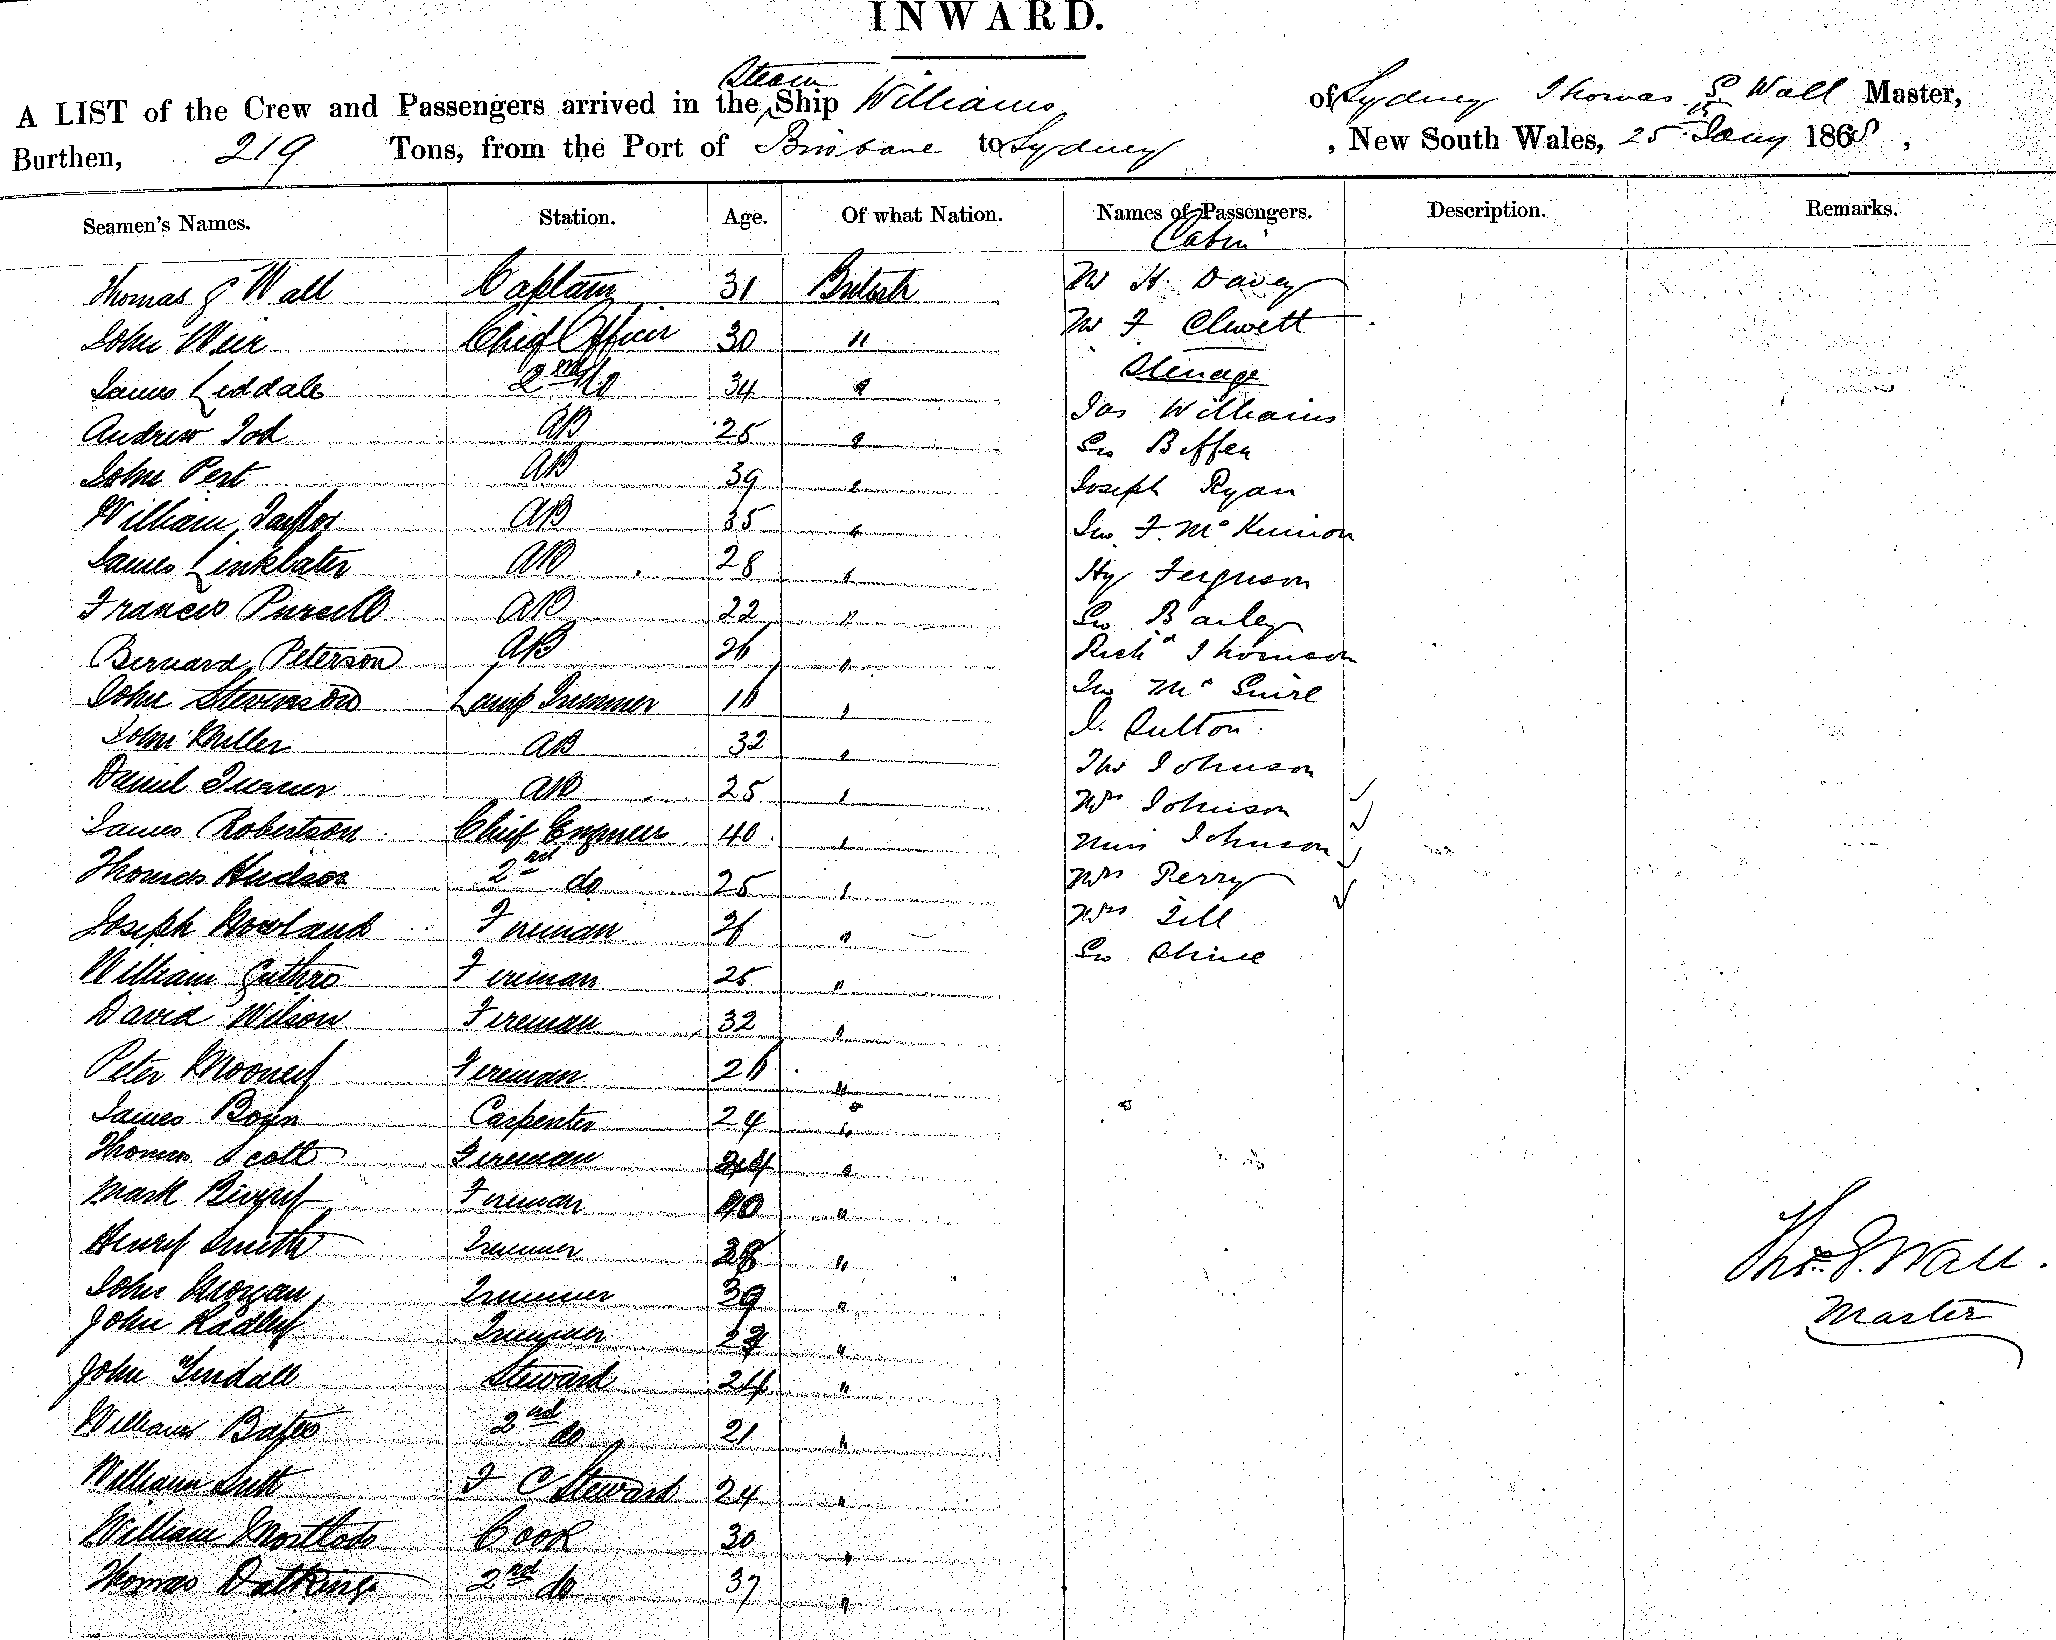 INWARD.
A LIST of the Crew and Passengers arrived in the Steam Ship Williams of Sydney Thomas S Wall Master,
Burthen, 219 Tons, from the Port of Brisbane to Sydney, New South Wales, 25 Jany 1868,
Seamen's Names. Station. Age. Of what Nation. Names of Passengers. Description. Remarks.
Cabin
Thomas S Wall Captain 31 British Mr H. Davey
John Weir Chief Officer 30 " Mr F Clewett
Steerage
James Liddale 2nd do 34 "
Andrew Tod AB 25 " Jas Williams
John Pert AB 39 " Geo Biffen
William Taylor AB 35 " Joseph Ryan
James Linklater AB 28 " Jno. F. McKinnon
Francis Purcell AB 22 " Hy Ferguson
Bernard Peterson AB 26 " Geo Bailey
John Stevenson Lamp Trimmer 16 " Richd Thomson
John Miller AB 32 " Jno McGuire
Daniel Turner AB 25 " J. Sutton
James Robertson Chief Engineer 40 " Thos Johnson
Thomas Hudson 2nd do 25 " Mrs Johnson
Joseph Rowland Fireman 26 " Miss Johnson
William Guthro Fireman 25 " Mrs Perry
David Wilson Fireman 32 " Mrs Gill
Peter Mooney Fireman 26 " Geo
James Boyn Carpenter 24 "
Thomas Scott Fireman 24 "
Mark Fireman 40 "
Henry Smith Trimmer 28 "
John Morgan Trimmer 39 "
John Radley Trimmer "
John Tindall Steward 24 "
William Bates 2nd do 21 "
William F C Steward 24 "
William Cook 30 "
Thomas 2nd do 37 "
Thos. S. Wall.
Master